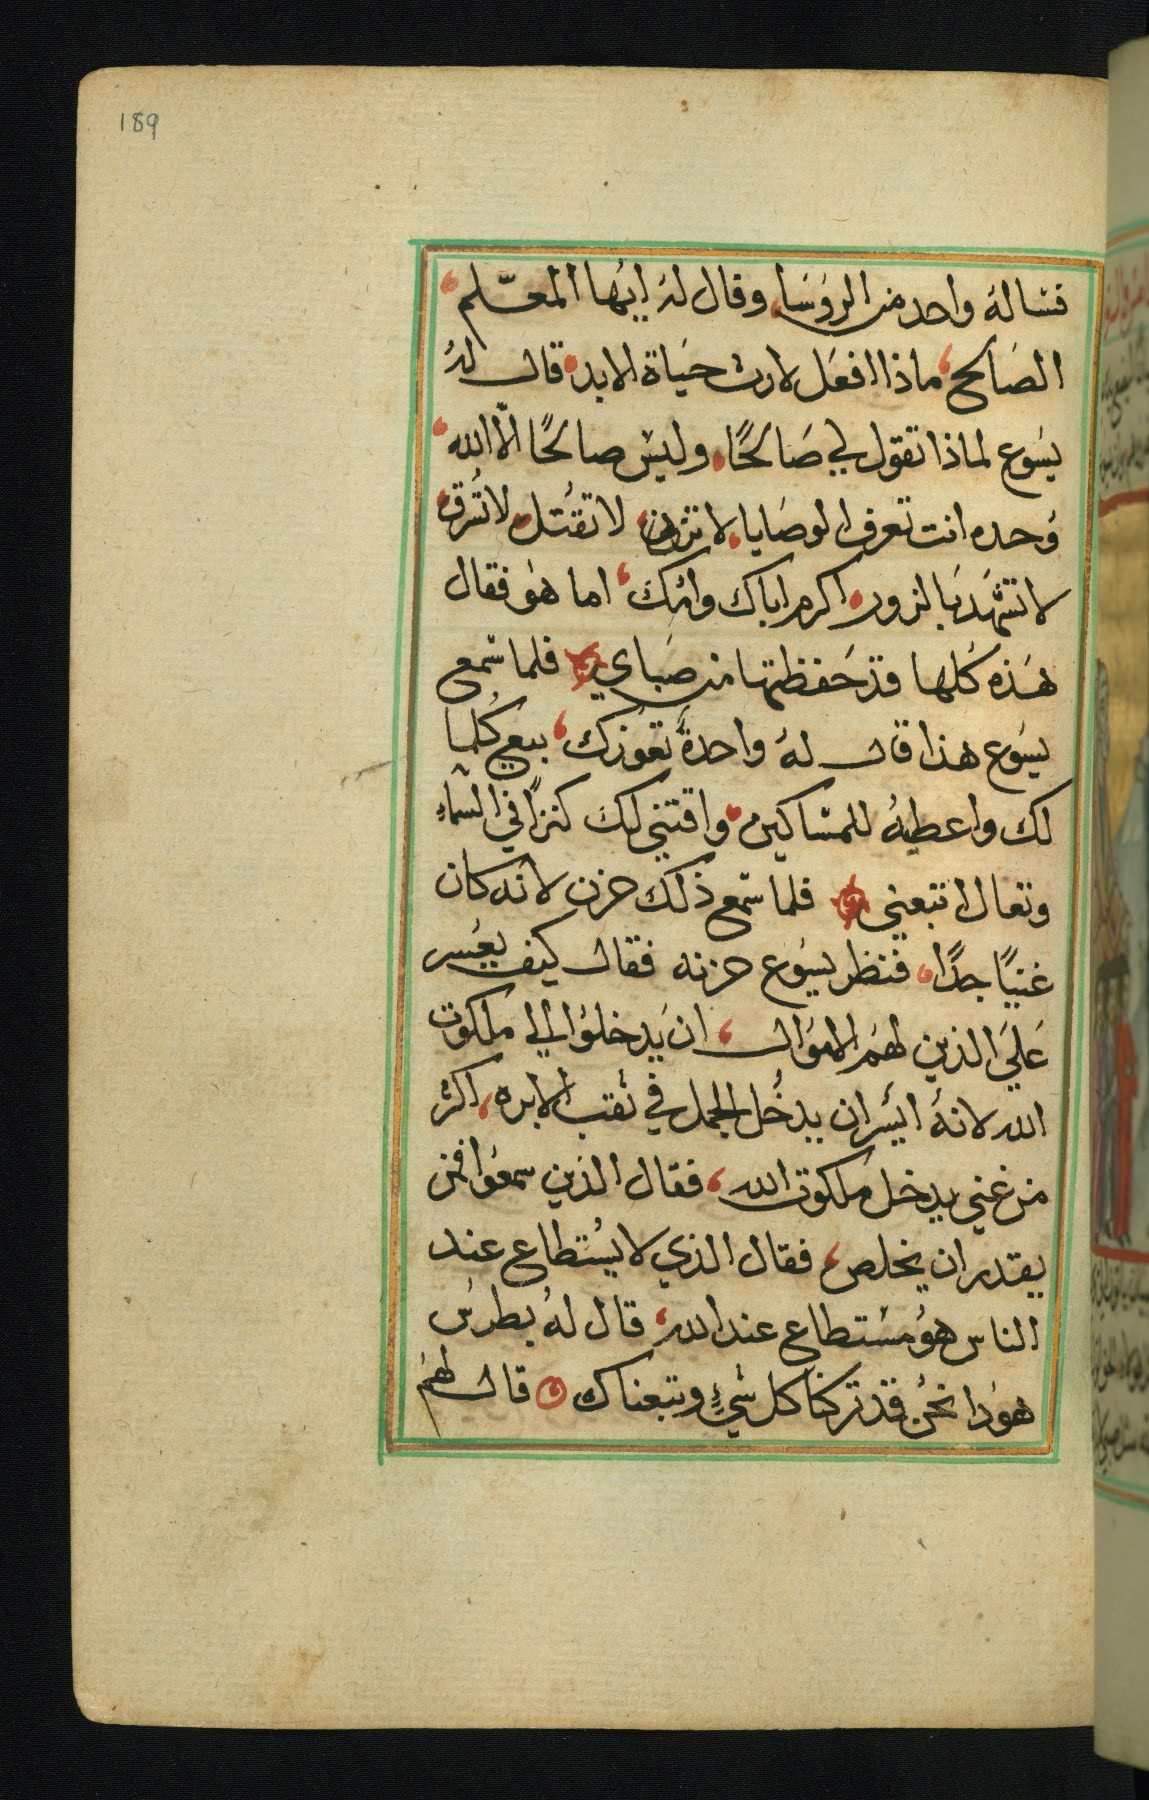 189
فساله واحد من الروسا، وقال له ايها المعلم،
الصالح، ماذا افعل لارث حياة الابد، قال له
يسوع لماذا تقول لي صالحًا، وليس صالحًا الّا الله،
وحده انت تعرف الوصايا، لا تزن، لا تقتل، لا تسرق،
لا تشهد بالزور، اكرم اباك وامك، اما هو فقال
هذه كلها قد حفظتها من صباي فلما سمع
يسوع هذا قال له واحدةً تعوزك، بيع كلما
لك واعطيه للمساكين، واقتني لك كنزًا في السماءِ
وتعال اتبعني فلما سمع ذلك حزن لانه كان
غنيًا جدًا، فنظر يسوع حزنه فقال كيف يعسر
على الذين لهم الاموال، ان يدخلوا الي ملكوت
الله لانه ايسر ان يدخل الجمل في ثقب الابره، اكثر
من غني يدخل ملكوت الله، فقال الذين سمعوا فمن
يقدر ان يخلص، فقال الذي لا يستطاع عند
الناس هو مستطاع عند الله، قال له بطرس
هوذا نحن قد تركنا كل شيءٍ وتبعناك قال لهم